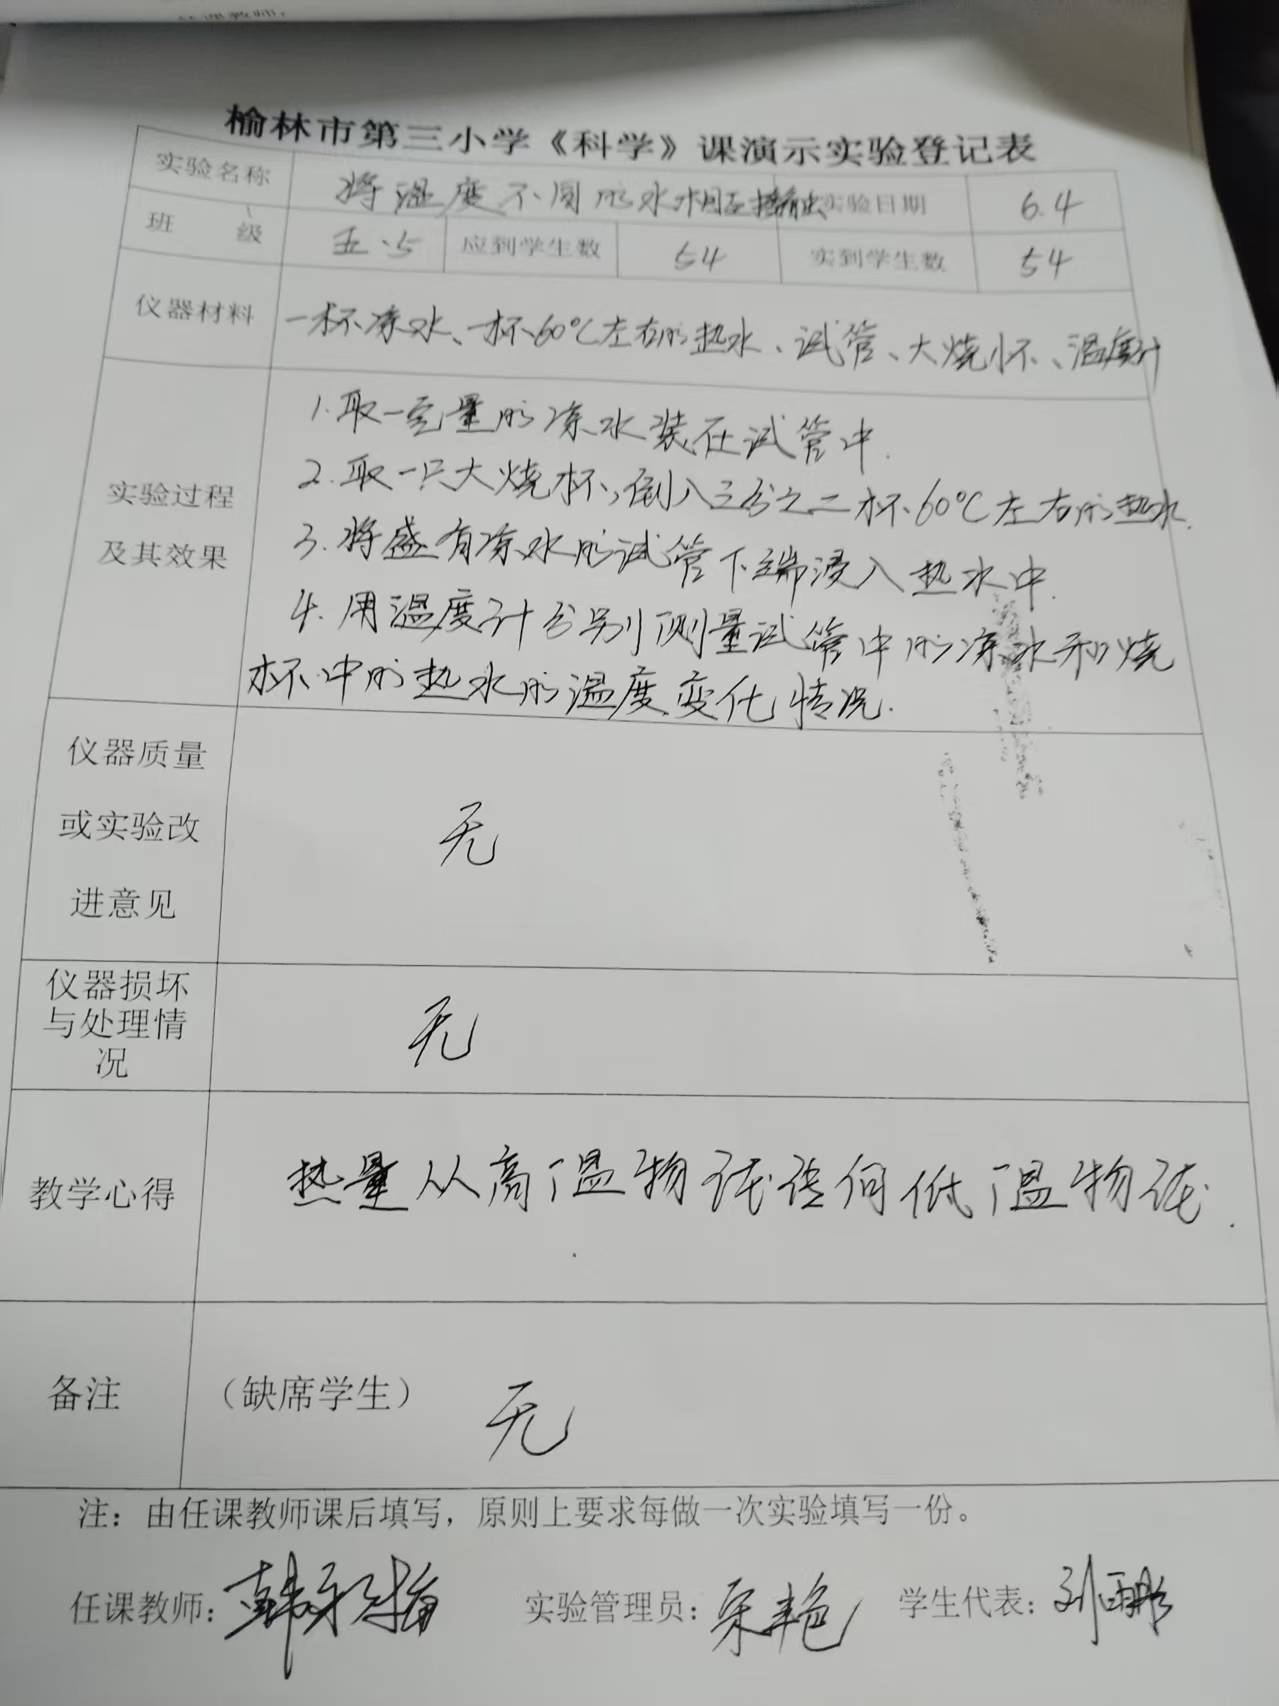 榆林市第三小学《科学》课演示实验登记表
实验名称 将温度不同的水相互接触 实验日期 6.4
班 级 五.5 应到学生数 54 实到学生数 54
仪器材料 一杯凉水、一杯60℃左右的热水、试管、大烧杯、温度计
1.取一定量的凉水装在试管中.
2.取一只大烧杯,倒入三分之二杯60℃左右的热水.
实验过程
及其效果
3.将盛有凉水的试管下端浸入热水中.
4.用温度计分别测量试管中的凉水和烧
杯中的热水的温度变化情况.
仪器质量
或实验改
进意见
无
仪器损坏
与处理情
况
无
教学心得 热量从高温物体传向低温物体.
备注 (缺席学生) 无
注：由任课教师课后填写，原则上要求每做一次实验填写一份。
任课教师： 实验管理员： 学生代表：